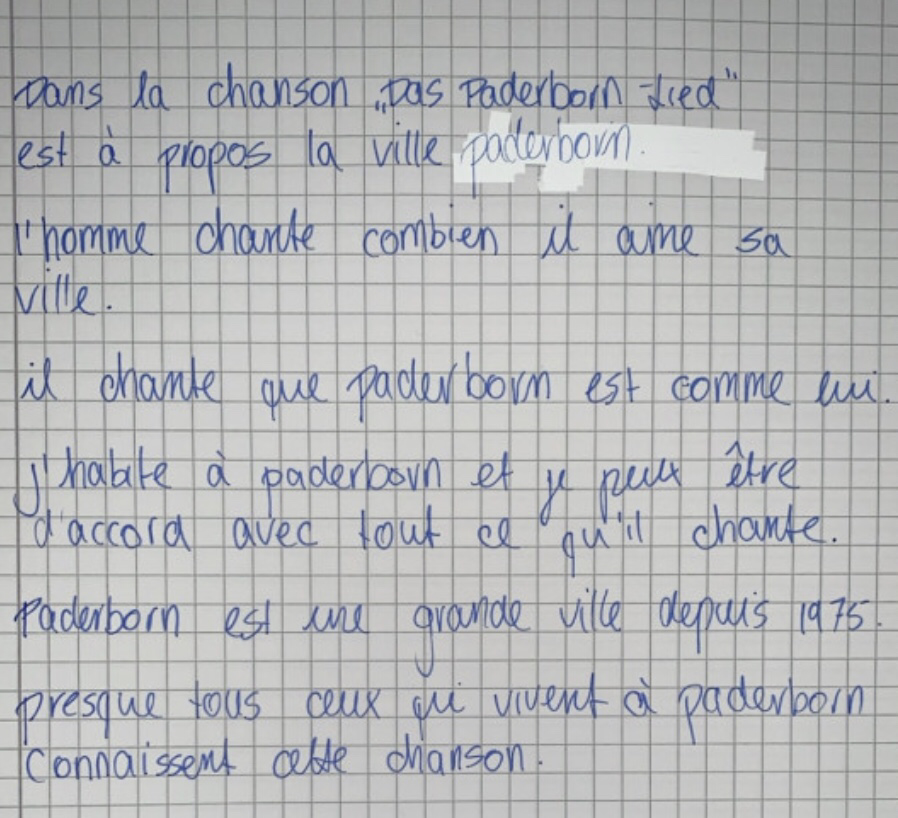 Dans la chanson „Das Paderborn-Lied"
est à propos la ville paderborn.
l'homme chante combien il aime sa
ville.
il chante que paderborn est comme lui.
J'habite à paderborn et je peux être
d'accord avec tout ce qu'il chante.
Paderborn est une grande ville depuis 1975.
presque tous ceux qui vivent à paderborn
connaissent cette chanson.